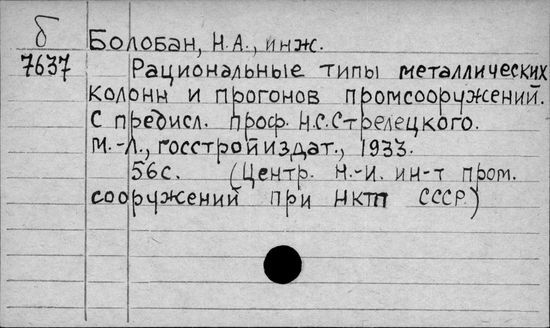 б
Болобан, Н.А., инж.
7637
Рациональные типы металлических
колонн и прогонов промсооружений.
С предисл. проф. Н.С.Стрелецкого.
М.-Л., Госстройиздат., 1933.
56с. (Центр. Н.-И. ин-т пром.
сооружений при НКТП СССР.)